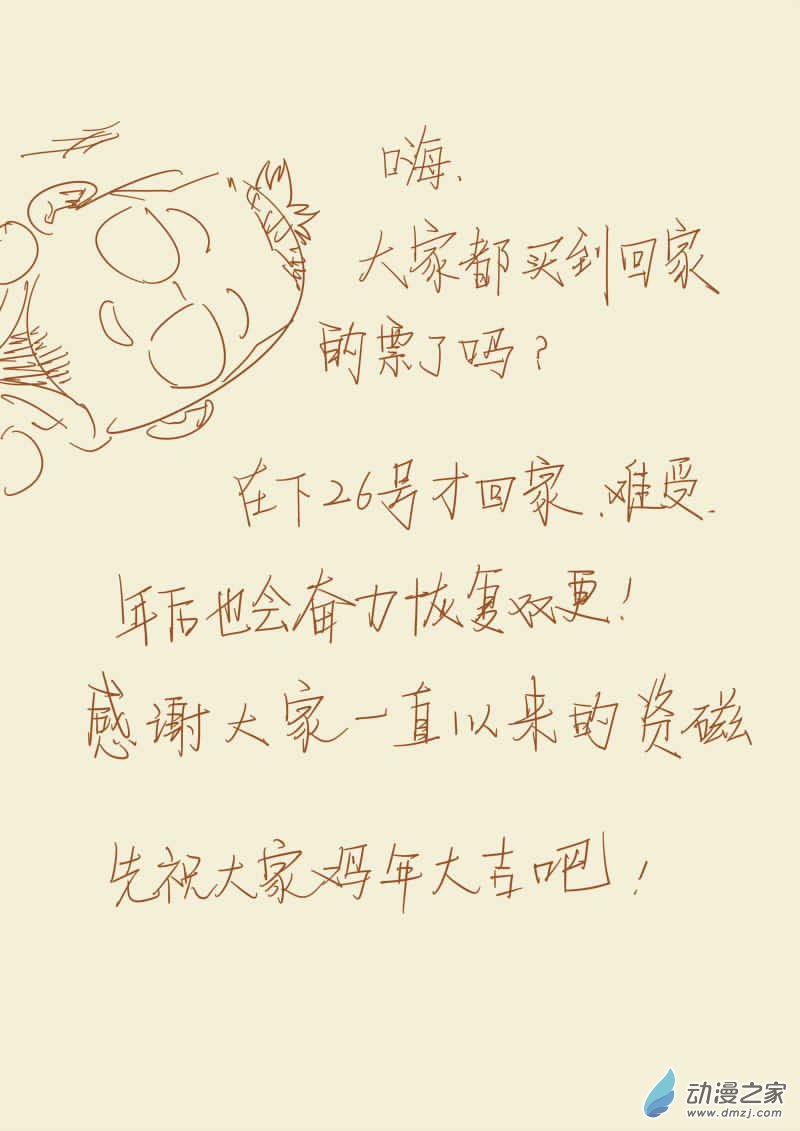 嗨.
大家都买到回家
的票了吗?
在下26号才回家.难受.
年后也会奋力恢复双更!
感谢大家一直以来的资磁
先祝大家鸡年大吉吧!
动漫之家
www.dmzj.com